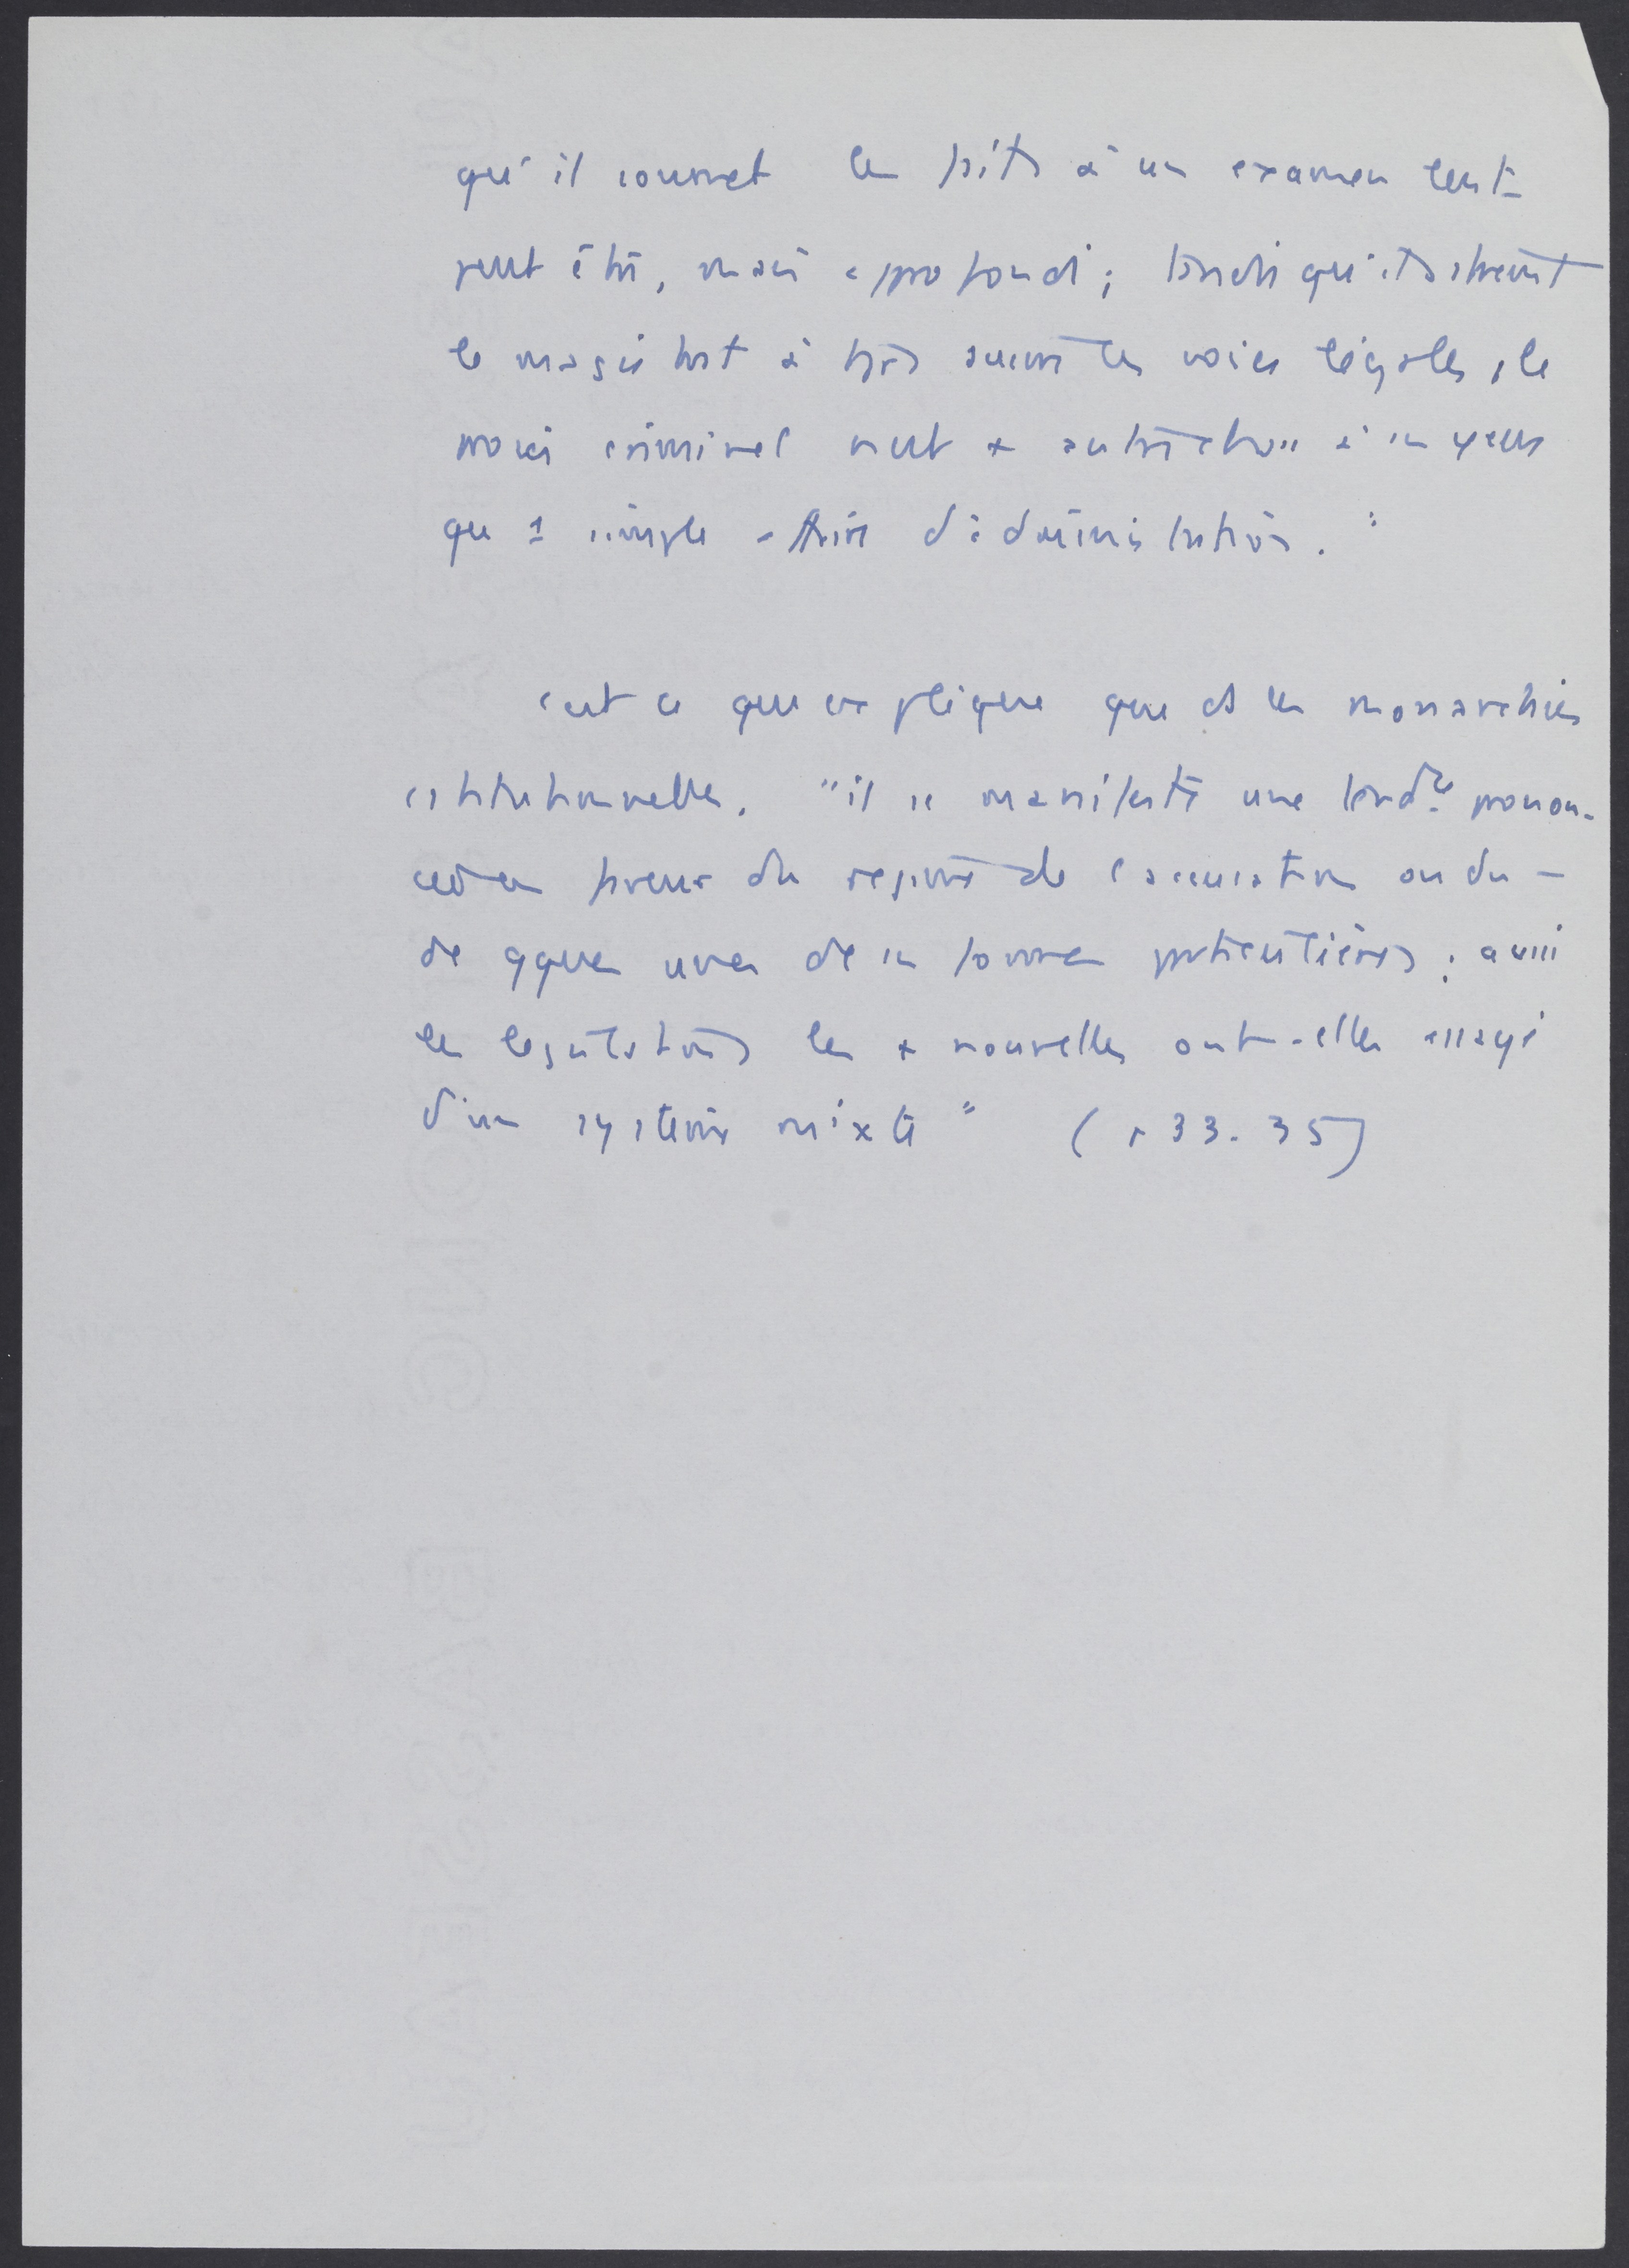 qu'il soumet les faits à un examen lent
peut être, mais approfond ; tandis qu'il astreint
le magistrat à faire suivre les voies légales, le
procès criminel n'est + autre chose à ses yeux
qu'1 simple affaire d'administration. "
c'est ce que explique que ds les monarchies
constitutionnelles, "il se manifeste une tendce pronon-
cée en faveur du régime de l'accusation ou du -
de qques unes de ses formes particulières ; aussi
les législations les + nouvelles ont-elles essayé
d'un système mixte" (p 33-35)